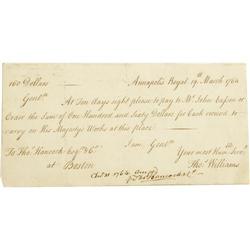 160 Dollars Annapolis Royal 19th March 1764
Gentn
At Ten days sight please to pay to Mr John Easson or
Order the Sum of One Hundred and Sixty Dollars for Cash received to
carrying on His Majestys Works at this place
I am Gentn
To Thos Hancock Esqr & Co Your most Hum Servt
at Boston Thos Williams
1764
Thos Hancock &